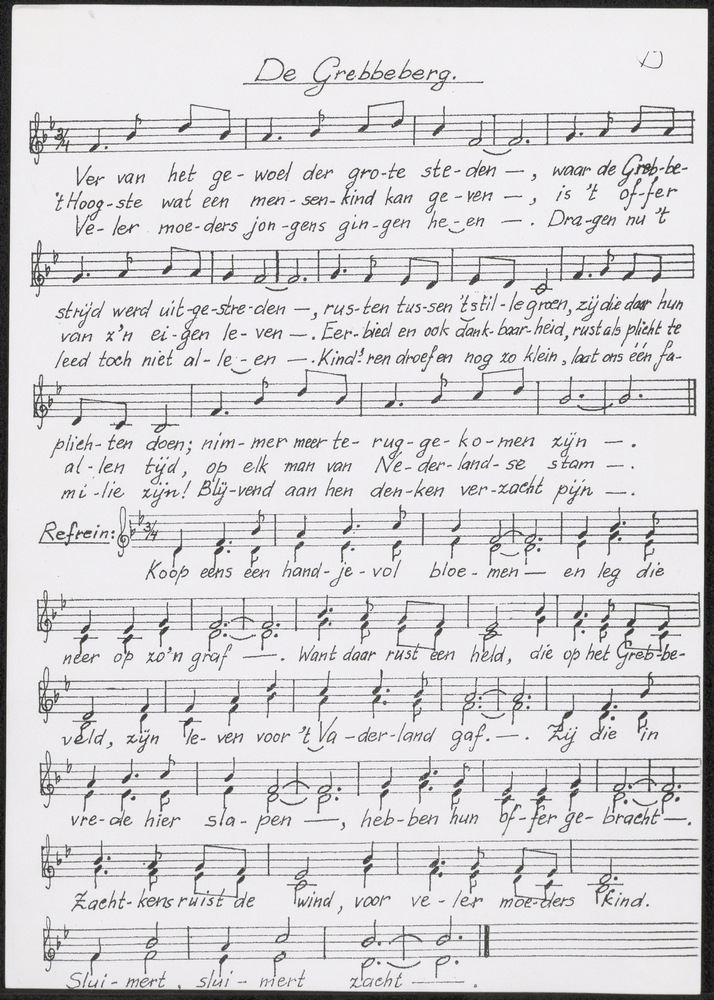 De Grebbeberg.
Ver van het ge-woel der gro-te ste-den —, waar de Greb-be-
't Hoog-ste wat een men-sen-kind kan ge-ven —, is 't of-fer
Ve-ler moe-ders jon-gens gin-gen he-en —. Dra-gen nu 't
strijd werd uit-ge-stre-den —, rus-ten tus-sen 't stil-le groen, zij die daar hun
van z'n ei-gen le-ven —. Eer-bied en ook dank-baar-heid, rust als plicht te
leed toch niet al-le-en —. Kind'ren droef en nog zo klein, laat ons één fa-
plich-ten doen; nim-mer meer te-rug-ge-ko-men zijn —.
al-len tijd, op elk man van Ne-der-land-se stam —.
mi-lie zijn! Blij-vend aan hen den-ken ver-zacht pijn —.
Refrein: Koop eens een hand-je-vol bloe-men — en leg die
neer op zo'n graf —. Want daar rust een held, die op het Greb-be-
veld, zijn le-ven voor 't Va-der-land gaf. —. Zij die in
vre-de hier sla-pen —, heb-ben hun of-fer ge-bracht —.
Zacht-kens ruist de wind, voor ve-ler moe-ders kind.
Slui-mert, slui-mert zacht —.